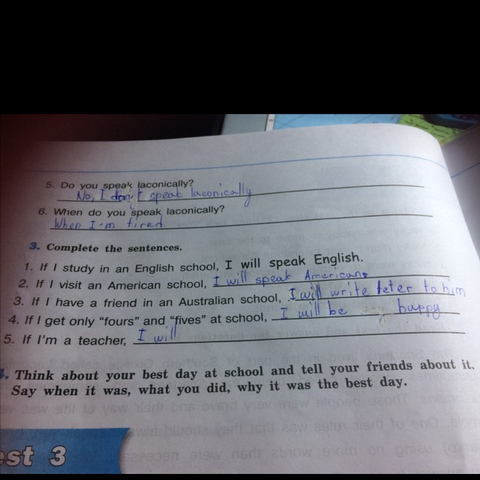 5. Do you speak laconically?
No, I don't speak laconically
6. When do you speak laconically?
When I'm tired
3. Complete the sentences.
1. If I study in an English school, I will speak English.
2. If I visit an American school, I will speak American.
3. If I have a friend in an Australian school, I will write leter to him
4. If I get only "fours" and "fives" at school, I will be happy
5. If I'm a teacher, I will
4. Think about your best day at school and tell your friends about it.
Say when it was, what you did, why it was the best day.
est 3